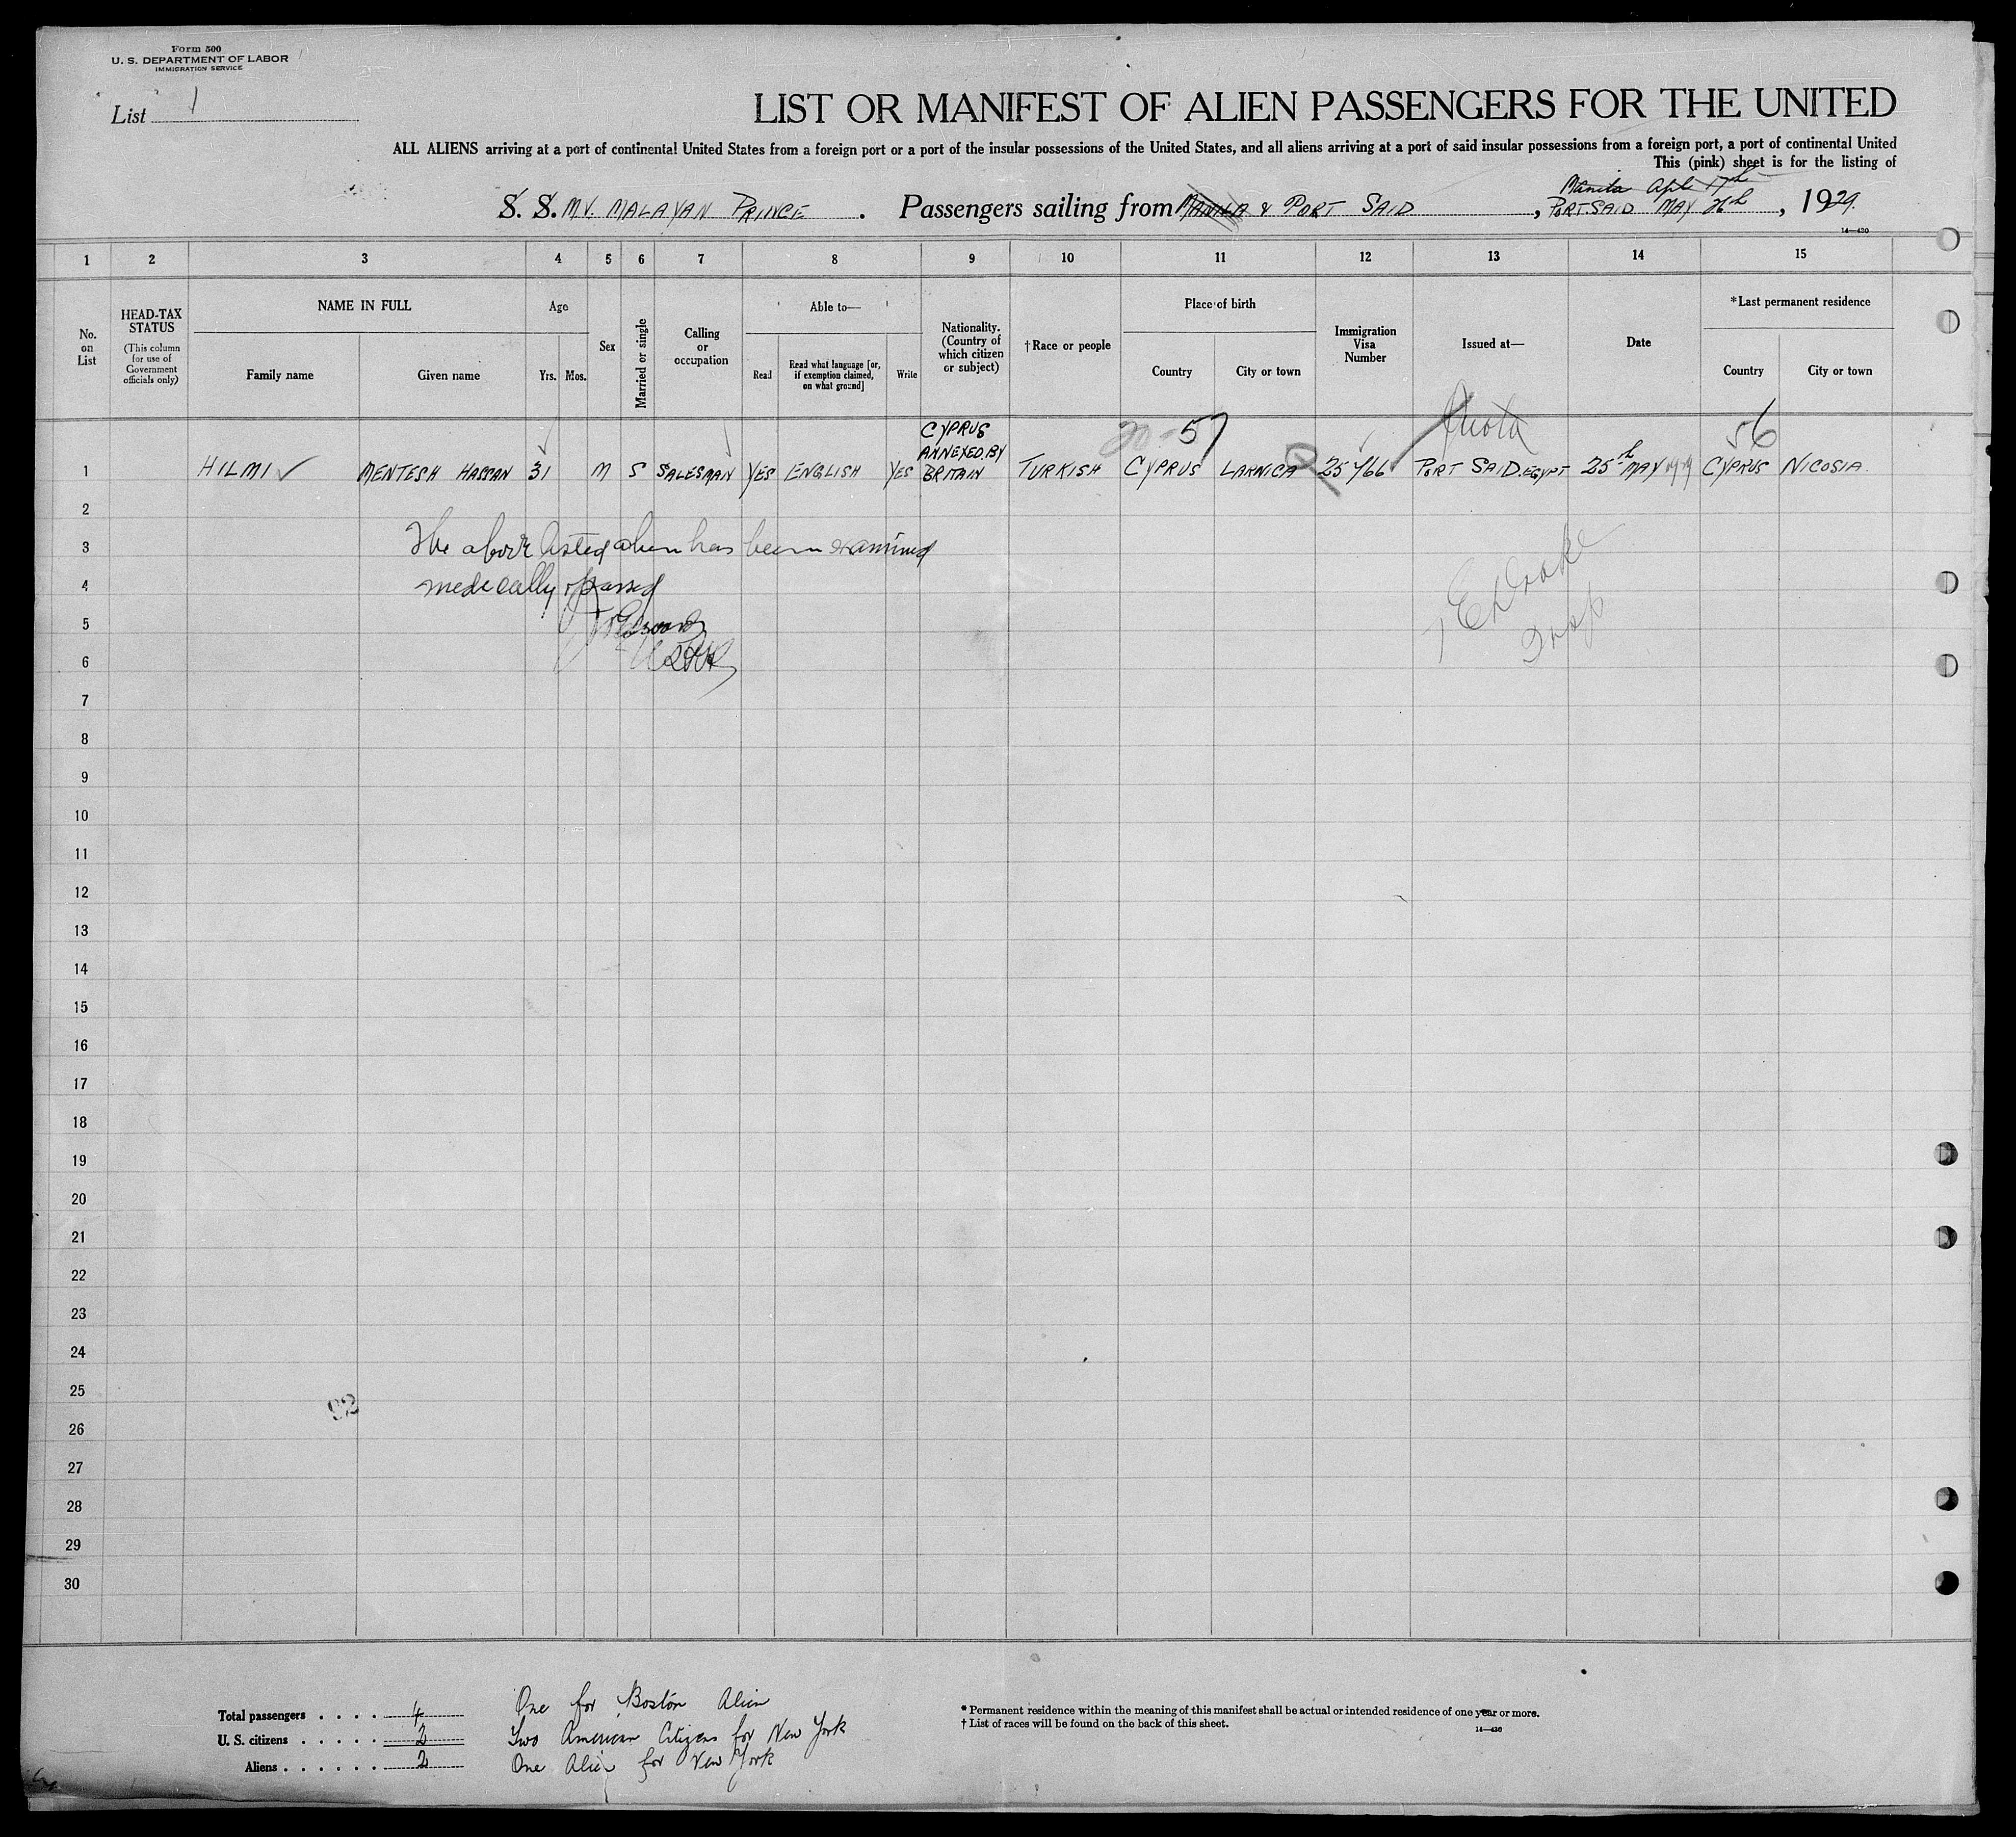 Form 500
U. S. DEPARTMENT OF LABOR
IMMIGRATION SERVICE
List 1
LIST OR MANIFEST OF ALIEN PASSENGERS FOR THE UNITED
ALL ALIENS arriving at a port of continental United States from a foreign port or a port of the insular possessions of the United States, and all aliens arriving at a port of said insular possessions from a foreign port, a port of continental United
This (pink) sheet is for the listing of
Manila Apl 17th
S. S. M.V. MALAYAN PRINCE. Passengers sailing from MANILA & PORT SAID, PORT SAID MAY 26th, 1929.
14—430
1 2 3 4 5 6 7 8 9 10 11 12 13 14 15
No. on List
HEAD-TAX STATUS
(This column for use of Government officials only)
NAME IN FULL
Family name
Given name
Age
Yrs.
Mos.
Sex
Married or single
Calling or occupation
Able to—
Read
Read what language [or, if exemption claimed, on what ground]
Write
Nationality. (Country of which citizen or subject)
† Race or people
Place of birth
Country
City or town
Immigration Visa Number
Issued at—
Date
*Last permanent residence
Country
City or town
20-57
Quota
56
1 HILMI MENTESH HASSAN 31 M S SALESMAN YES ENGLISH YES CYPRUS ANNEXED BY BRITAIN TURKISH CYPRUS LARNICA 25766 PORT SAID. EGYPT 25th MAY CYPRUS NICOSIA.
2
3 The above listed alien has been examined
4 medically & passed
E Drake
Insp
5
6
7
8
9
10
11
12
13
14
15
16
17
18
19
20
21
22
23
24
25
92
26
27
28
29
30
Total passengers . . . . 4 One for Boston Alien
U. S. citizens . . . . . 2 Two American Citizens for New York
Aliens . . . . . . 2 One Alien for New York
* Permanent residence within the meaning of this manifest shall be actual or intended residence of one year or more.
† List of races will be found on the back of this sheet.
14—430